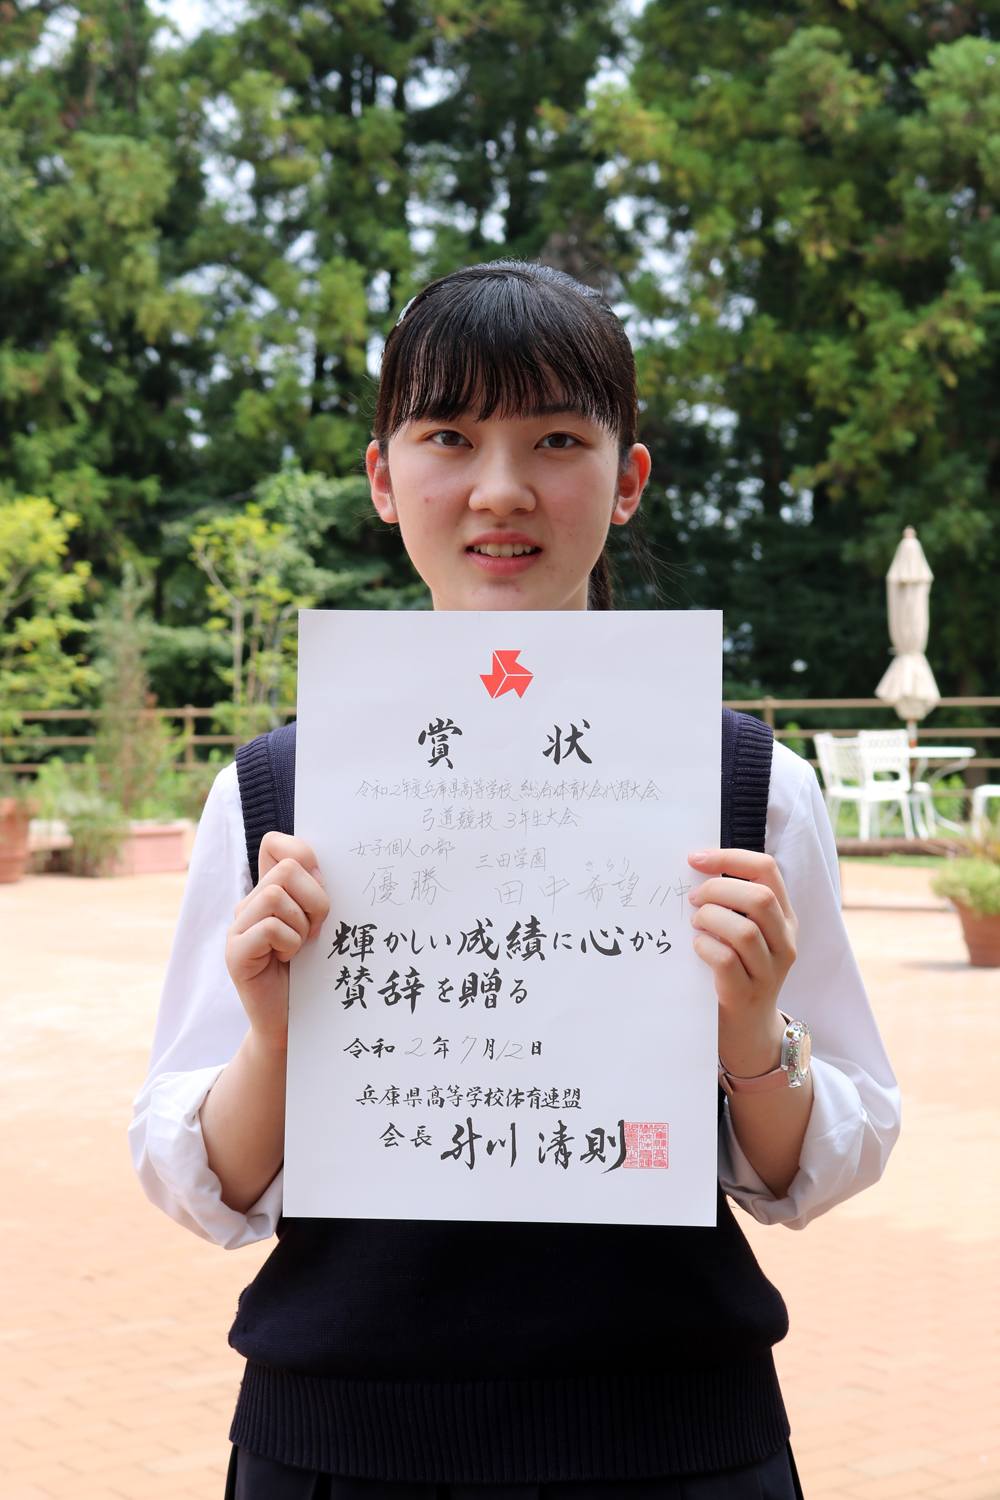 賞 状
令和2年度兵庫県高等学校総合体育大会代替大会
弓道競技 3年生大会
女子個人の部
優勝 三田学園 田中希望
きらり
輝かしい成績に心から
賛辞を贈る
令和2年7月12日
兵庫県高等学校体育連盟
会長 升川清則